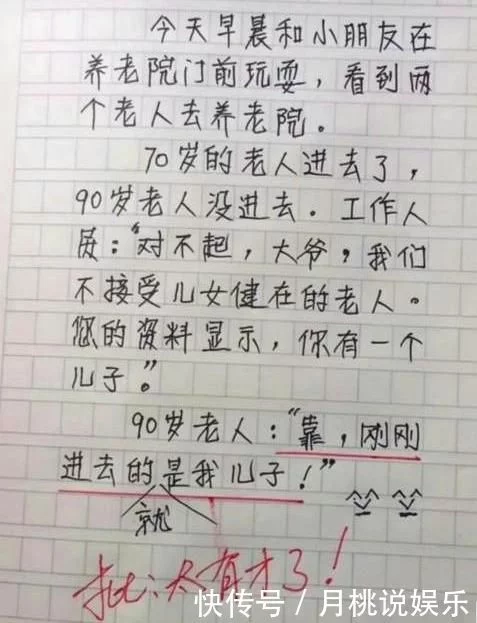 今天早晨和小朋友在
养老院门前玩耍，看到两
个老人去养老院。
70岁的老人进去了，
90岁老人没进去。工作人
员：“对不起，大爷，我们
不接受儿女健在的老人。
您的资料显示，你有一个
儿子。”
90岁老人：“靠，刚刚
进去的是我儿子！”
就
批：太有才了！
快传号/月桃说娱乐